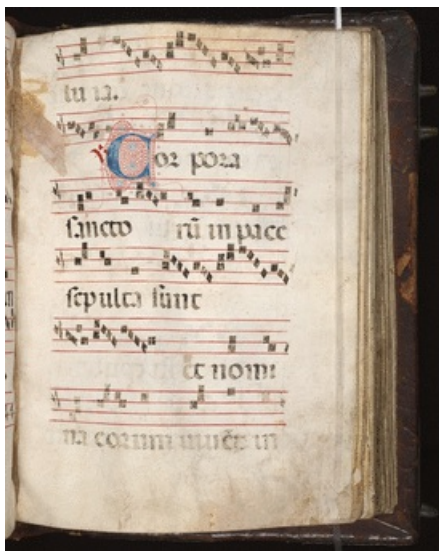 lu ia.
℣ Cor pora
sancto rū in pace
sepulta sunt
et nomi
na eorum in